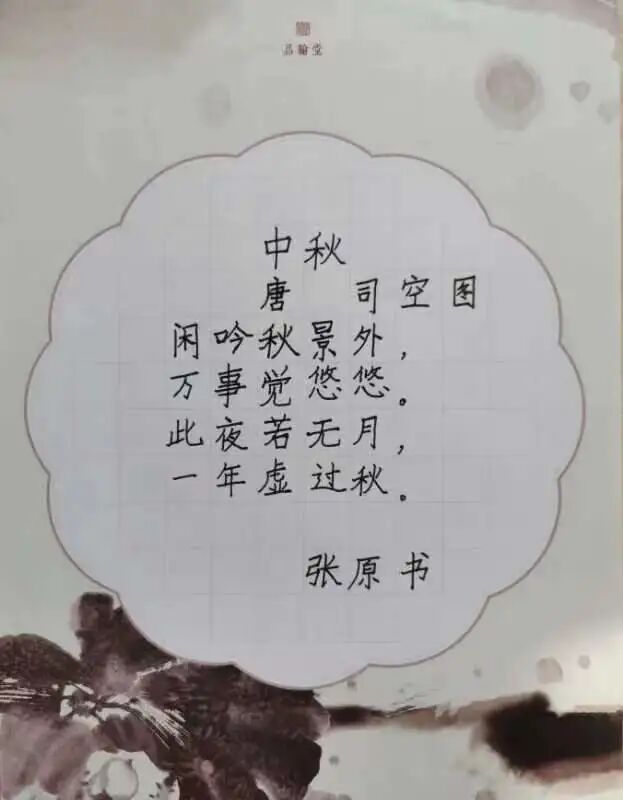 品翰堂
中秋
唐 司空图
闲吟秋景外，
万事觉悠悠。
此夜若无月，
一年虚过秋。
张原书